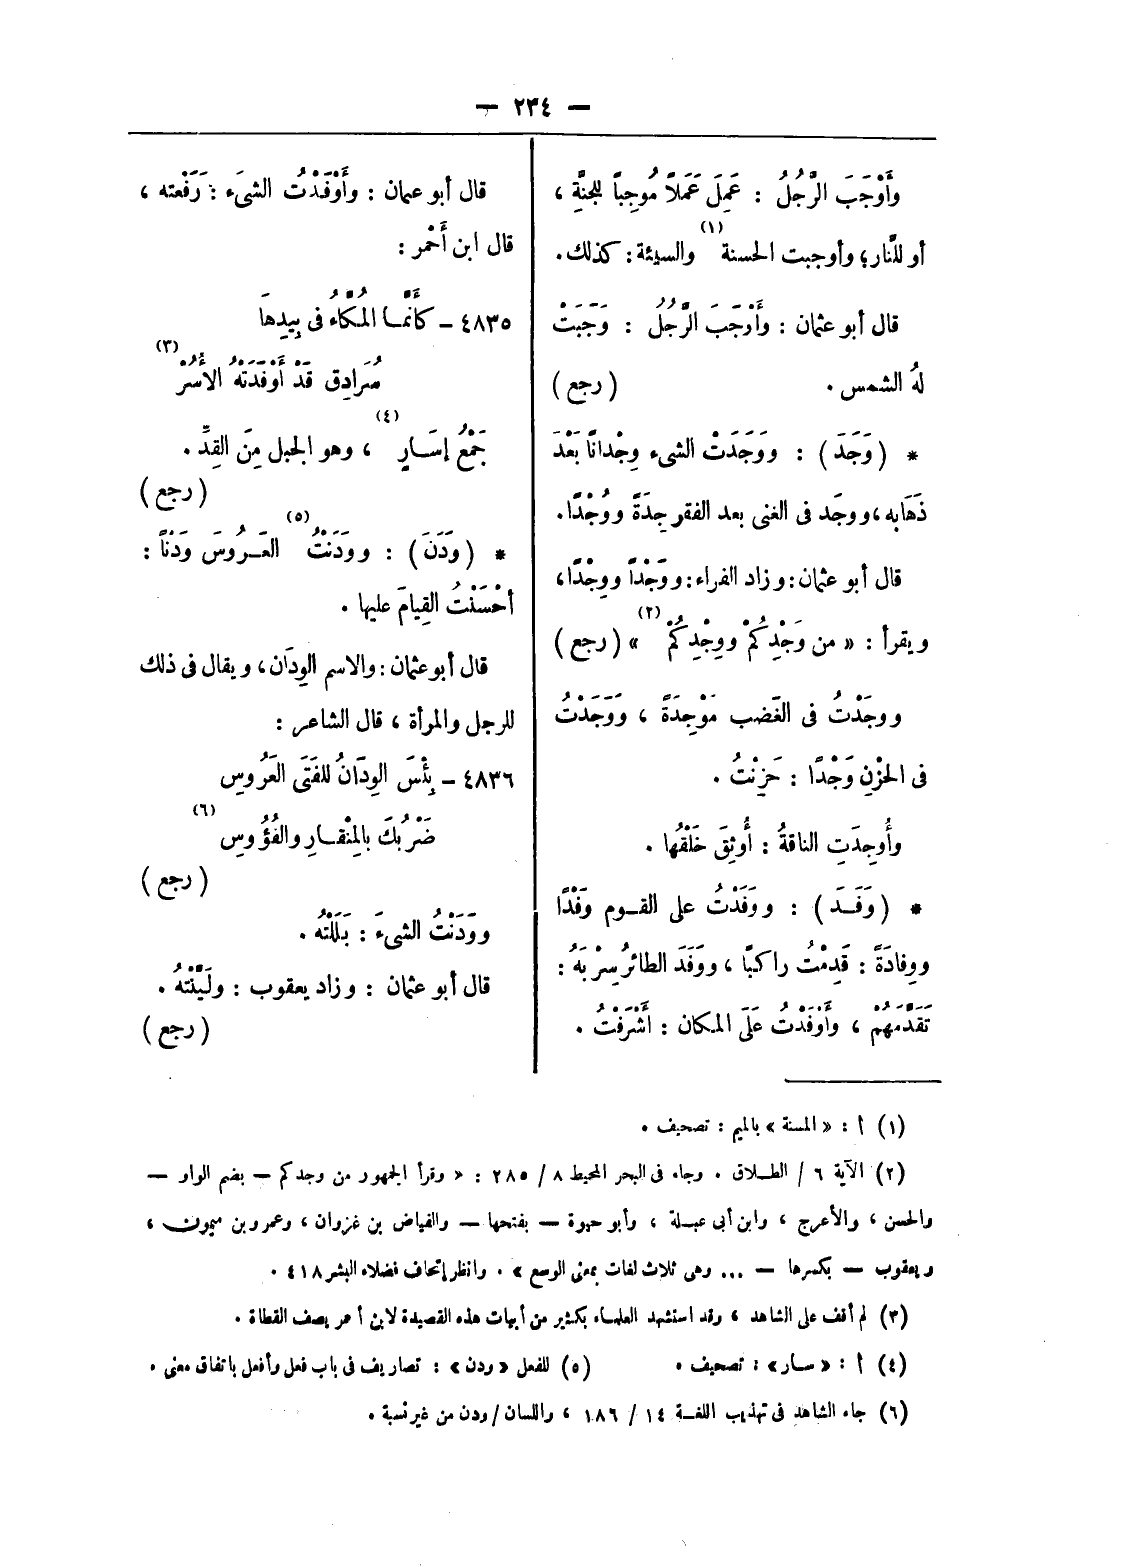 — ٢٣٤ —
وأَوْجَبَ الرَّجُلُ : عَمِلَ عَمَلاً مُوجِباً للجنَّةِ ،
أو للنَّار؛ وأوجبت الحسنة (١) والسيئة : كذلك .
قال أبو عثمان : وأَوْجَبَ الرَّجُلُ : وَجَبَتْ
لهُ الشمس . ( رجع )
* ( وَجَدَ ) : ووَجَدَتْ الشىء وِجْدانًا بَعْدَ
ذَهَابه ، ووجَد فى الغنى بعد الفقر جِدَةً ووُجْدًا .
قال أبو عثمان : وزاد الفراء : ووَجْداً ووِجْدًا ،
ويقرأ : « من وَجْدِكُمْ ووِجْدِكُمْ (٢) » ( رجع )
ووجَدْتُ فى الغَضب مَوْجِدَةً ، ووَجَدْتُ
فى الحزْنِ وَجْدًا : حَزِنْتُ .
وأُوجِدَتِ الناقةُ : أُوثِقَ خَلْقُها .
* ( وَفَـدَ ) : ووَفَدْتُ على القـوم وفْدًا
ووِفادَةً : قَدِمْتُ راكبًا ، ووَفَدَ الطائرُ سِرْبَهُ :
تَقَدَّمَهُمْ ، وأَوْفَدْتُ عَلَى المكان : أَشْرَفْتُ .
قال أبو عمان : وأَوْفَدْتُ الشىَء : رَفَعْته ،
قال ابن أَحْمر :
٤٨٣٥ – كَأَنَّمـا المُكَّاءُ فى بِيدِهَا
سُرَادِق قَدْ أَوْفَدَتْهُ الأُسُرْ (٣)
جَمْعُ إسَـارٍ (٤) ، وهو الحبل مِنَ القِدِّ .
( رجع )
* ( وَدَنَ ) : وودَنْتُ (٥) العَـرُوسَ وَدْنًا :
أحْسَنْتُ القِيامَ عليها .
قال أبو عثمان : والاسم الوِدَان ، ويقال فى ذلك
للرجل والمرأة ، قال الشاعر :
٤٨٣٦ – بِئْسَ الوِدَانُ للفَتَى العَرُوسِ
ضَرْبُكَ بالمِنْقـارِ والفُؤُوسِ (٦)
( رجع )
ووَدَنْتُ الشىءَ : بَلَلْتُه .
قال أبو عثمان : وزاد يعقوب : ولَيَّنْتُهُ .
( رجع )
(١) أ : « المسنة » بالميم : تصحيف .
(٢) الآية ٦ / الطـلاق . وجاء فى البحر المحيط ٨ / ٢٨٥ : « وقرأ الجمهور من وجدكم – بضم الواو –
والحسن ، والأعرج ، وابن أبى عبـلة ، وأبو حيوة – بفتحها – والفياض بن غزوان ، وعمرو بن ميمون ،
ويعقوب – بكسرها – ... وهى ثلاث لغات بمعنى الوسع » . وانظر إتحاف فضلاء البشر ٤١٨ .
(٣) لم أقف على الشاهد ، وقد استشهد العلمـاء بكثير من أبيات هذه القصيدة لابن أحمر يصف القطاة .
(٤) أ : « سار » : تصحيف . (٥) للفعل « ودن » : تصاريف فى باب فعل وأفعل باتفاق معنى .
(٦) جاء الشاهد فى تهذيب اللغـة ١٤ / ١٨٦ ، واللسان / ودن من غير نسبة .